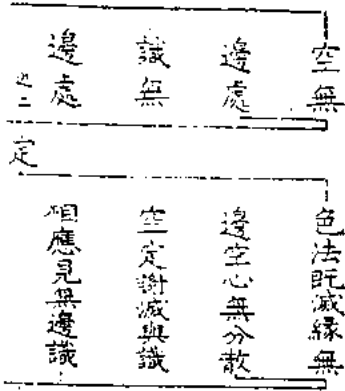 空無
邊處
識無
邊處 此二
定
色法既滅緣無
邊空心無分散
空定謝滅與識
相應見無邊識